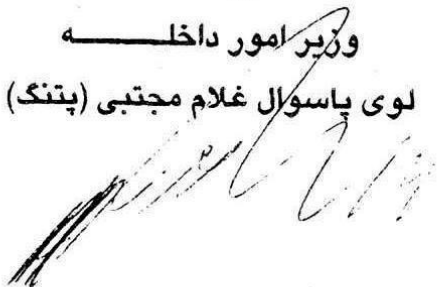 وزیر امور داخلـــــه
لوی پاسوال غلام مجتبی (پتنگ)